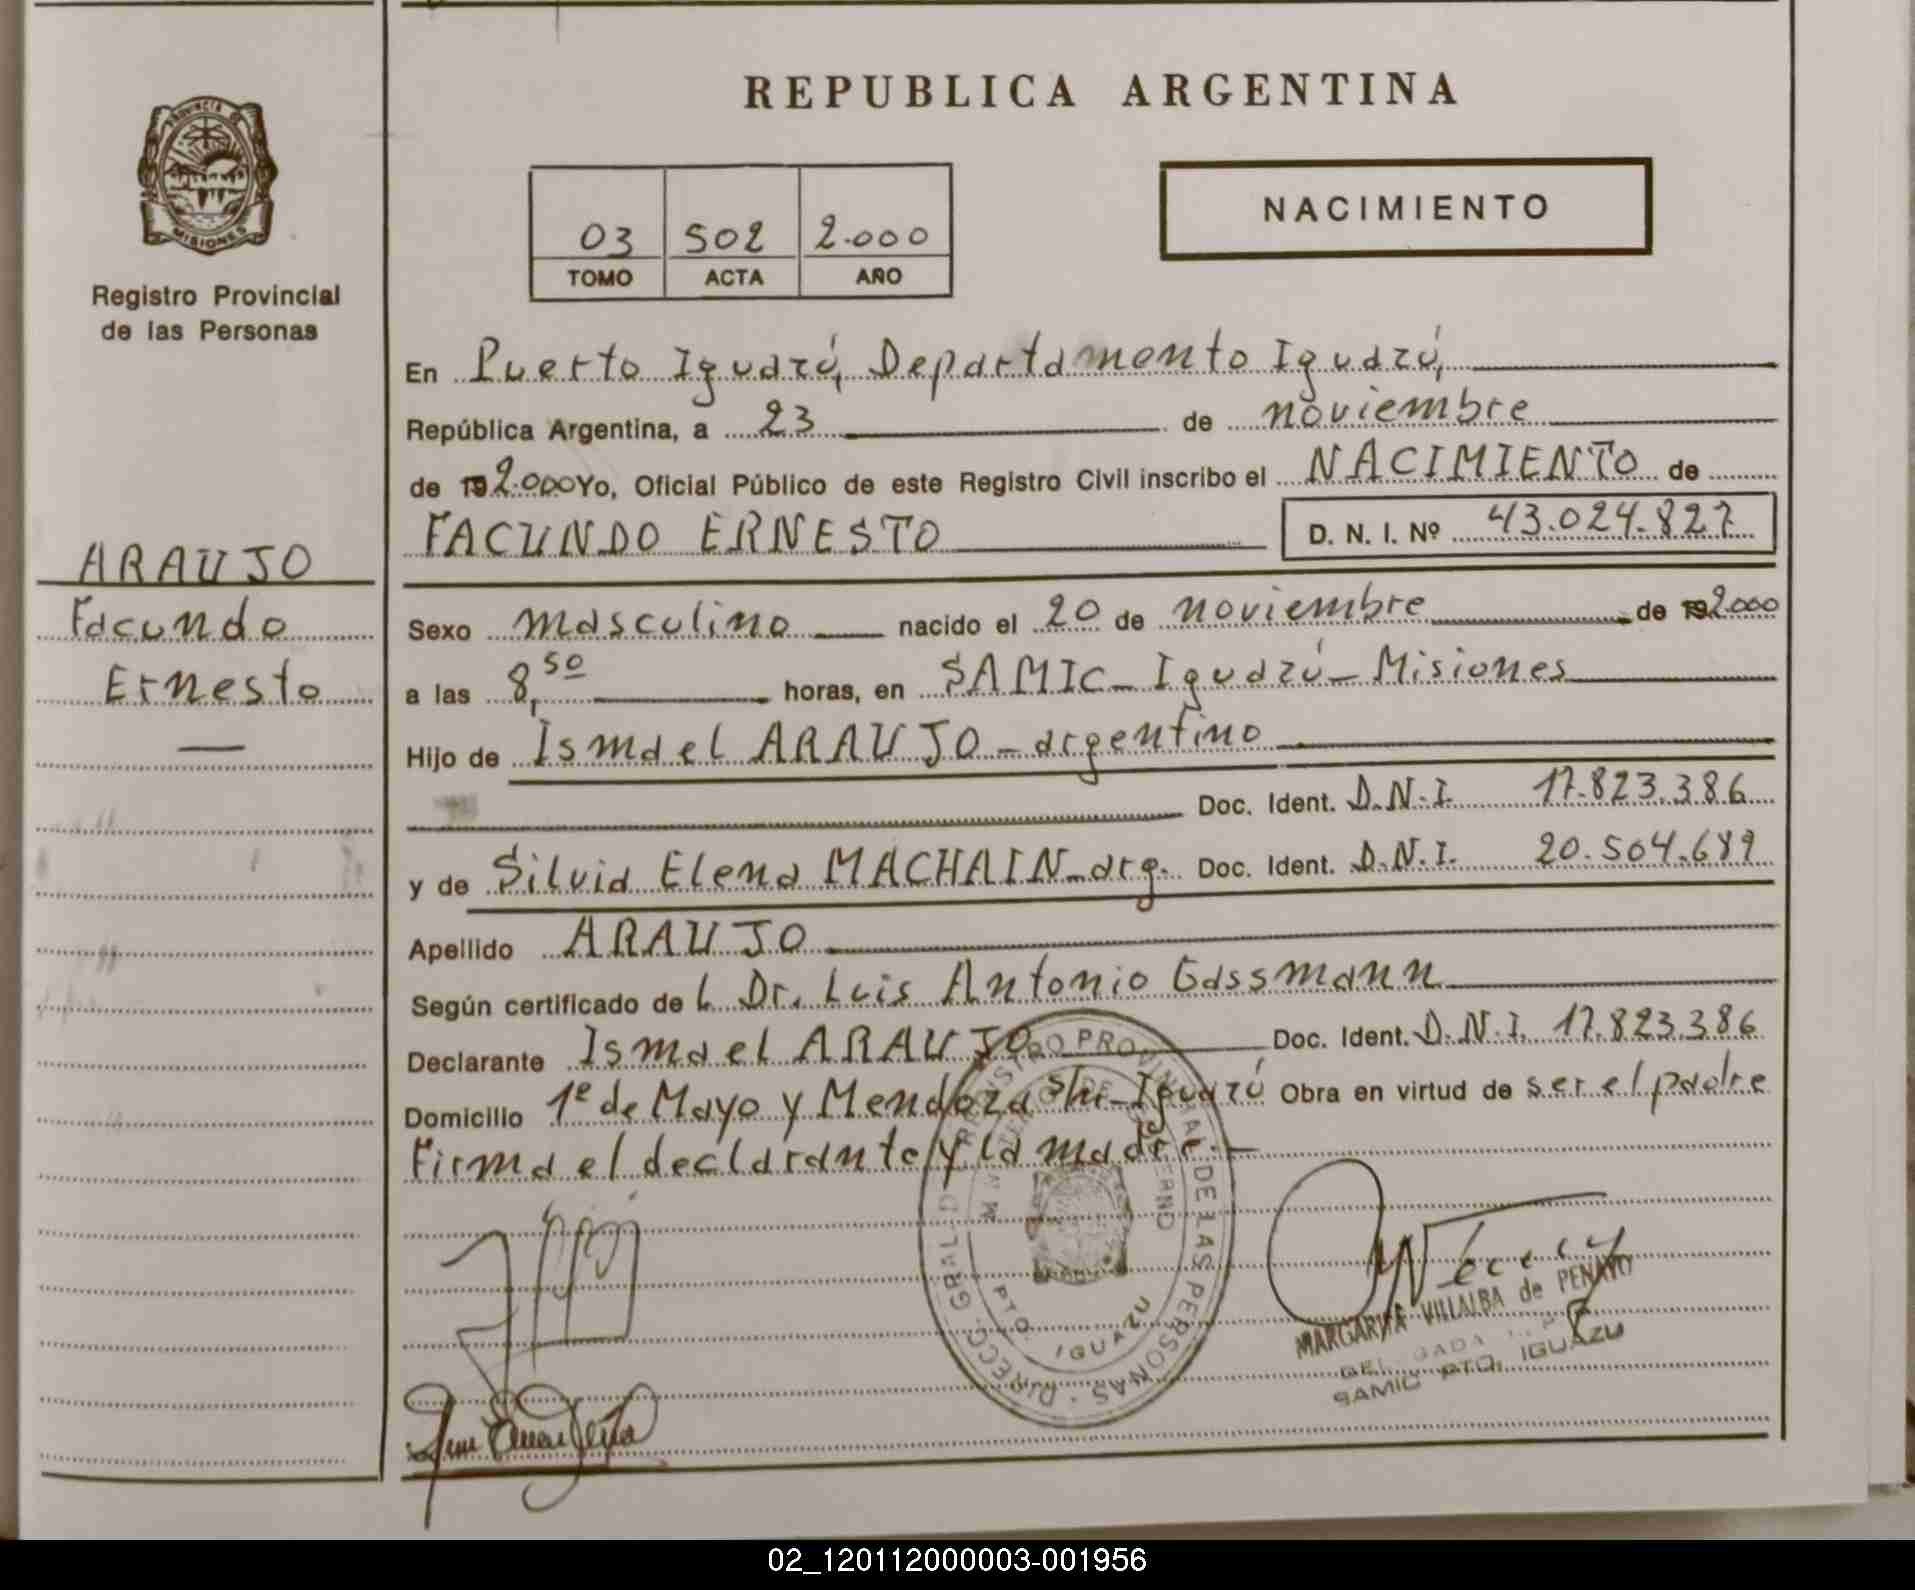 REPUBLICA ARGENTINA
PROVINCIA DE
MISIONES
Registro Provincial
de las Personas
03 502 2.000
TOMO ACTA AÑO
NACIMIENTO
En Puerto Iguazú, Departamento Iguazú,
República Argentina, a 23 de noviembre
de 19 2.000 Yo, Oficial Público de este Registro Civil inscribo el NACIMIENTO de
FACUNDO ERNESTO D. N. I. Nº 43.024.827
ARAUJO
Facundo
Ernesto
Sexo masculino nacido el 20 de noviembre de 19 2.000
a las 8,50 horas, en SAMIC - Iguazú - Misiones
Hijo de Ismael ARAUJO - argentino
Doc. Ident. D.N.I. 17.823.386
y de Silvia Elena MACHAIN - arg. Doc. Ident. D.N.I. 20.504.689
Apellido ARAUJO
Según certificado de l Dr. Luis Antonio Gassmann
Declarante Ismael ARAUJO Doc. Ident. D.N.I. 17.823.386
Domicilio 1º de Mayo y Mendoza s/n - Iguazú Obra en virtud de ser el padre
Firma el declarante y la madre.-
DIRECC. GRAL. DEL REGISTRO PROVINCIAL DE LAS PERSONAS
PTO. IGUAZU
MARGARITA VILLALBA de PENAYO
SAMIC PTO. IGUAZU
02_120112000003-001956